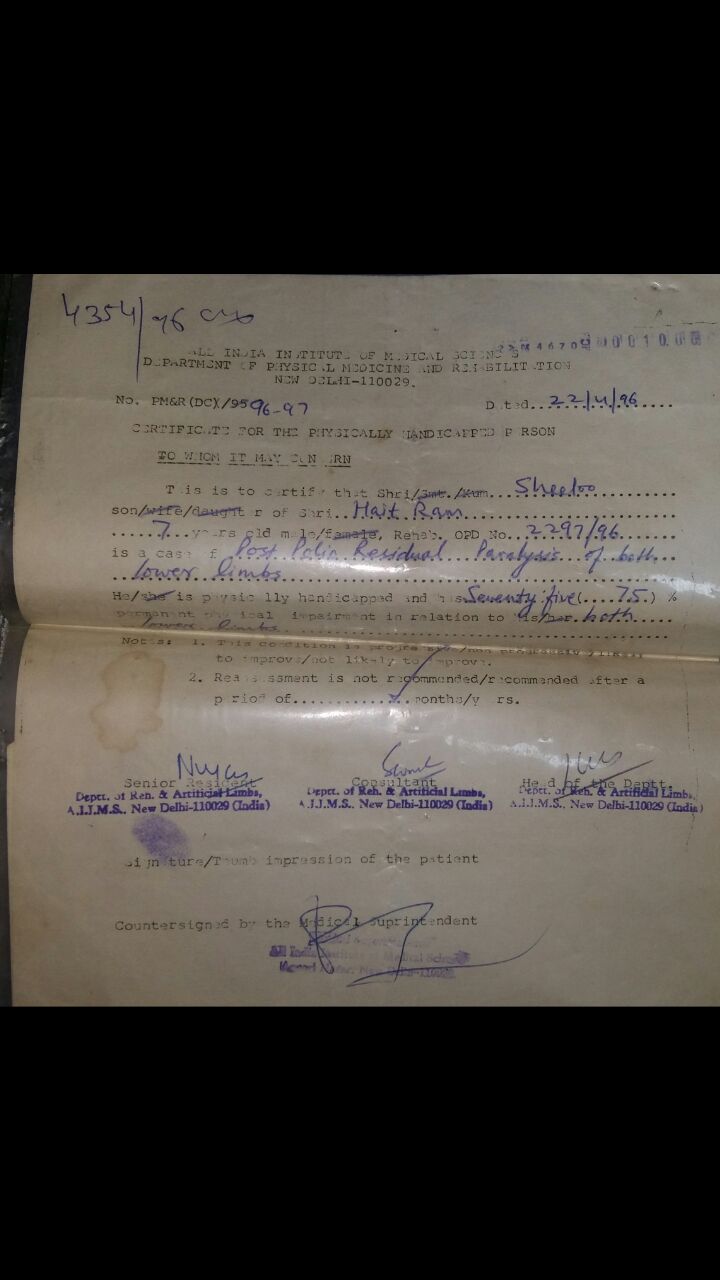 4354/96
ALL INDIA INSTITUTE OF MEDICAL SCIENCES
DEPARTMENT OF PHYSICAL MEDICINE AND REHABILITATION
NEW DELHI-110029.
No. PM&R(DC)/95 96-97 Dated...22/4/96....
CERTIFICATE FOR THE PHYSICALLY HANDICAPPED PERSON
TO WHOM IT MAY CONCERN
This is to certify that Shri/Smt./Kum... Sheeloo
son/wife/daughter of Shri..Hait Ram
.....7...years old male/female, Rehab. OPD No..2297/96
is a case of Post Polio Residual Paralysis of both
lower limbs
He/she is physically handicapped and has Seventy five(....75.) %
permanent physical impairment in relation to his/her both
lower limbs
Notes: 1. This condition is progressive/non progressive/likely
to improve/not likely to improve.
2. Reassessment is not recommended/recommended after a
period of............months/years.
Senior Resident Consultant Head of the Deptt.
Deptt. of Reh. & Artificial Limbs, Deptt. of Reh. & Artificial Limbs, Deptt. of Reh. & Artificial Limbs,
A.I.I.M.S., New Delhi-110029 (India) A.I.I.M.S., New Delhi-110029 (India) A.I.I.M.S., New Delhi-110029 (India)
Signature/Thumb impression of the patient
Countersigned by the Medical Suprintendent
All India Institute of Medical Sciences
New Delhi-110029